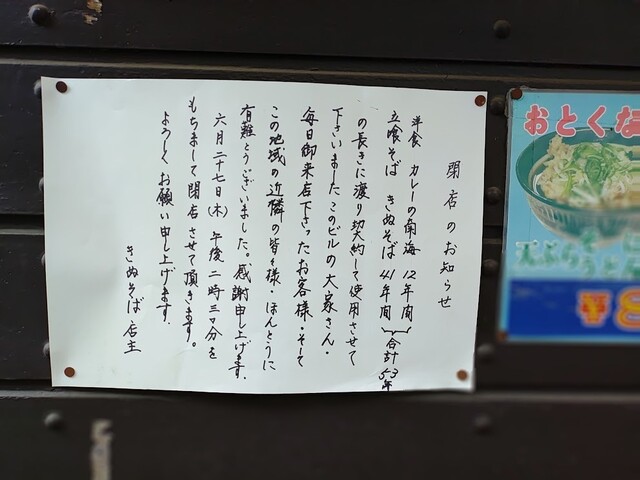 閉店のお知らせ
洋食 カレーの南海 12年間
立喰そば きぬそば 41年間
合計53年
の長きに渡り契約して使用させて
下さいました このビルの大家さん・
毎日御来店下さったお客様・そして
この地域の近隣の皆々様・ほんとうに
有難とうございました。感謝申し上げます.
六月二十七日(木)午後二時三十分を
もちまして閉店させて頂きます。
よろしくお願い申し上げます.
きぬそば店主
おとくな
天ぷら
¥8